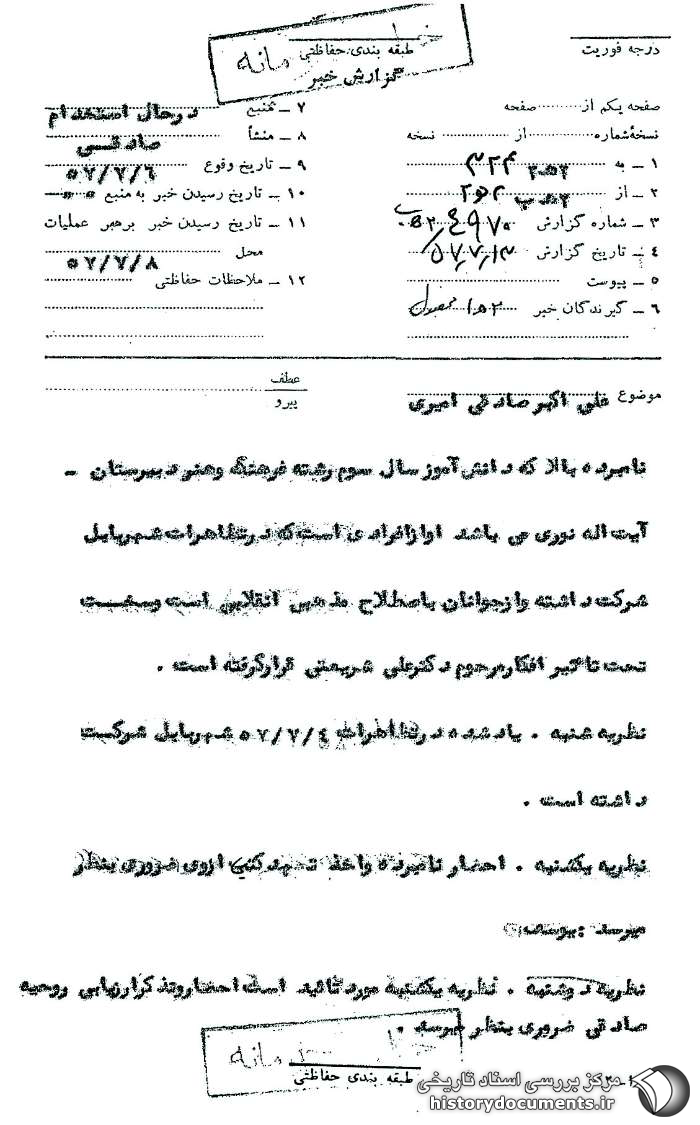 درجه فوریت
طبقه بندی حفاظتی
گزارش خبر
صفحه یکم از صفحه
نسخهٔ شماره از نسخه
۱ ـ به ۳۲۴
۲ ـ از
۳ ـ شماره گزارش
۴ ـ تاریخ گزارش
۵ ـ پیوست
۶ ـ گیرندگان خبر
۷ ـ منبع در حال استخدام
۸ ـ منشأ صادقی
۹ ـ تاریخ وقوع ۵۷/۷/۶
۱۰ ـ تاریخ رسیدن خبر به منبع
۱۱ ـ تاریخ رسیدن خبر برهبر عملیات
محل ۵۷/۷/۸
۱۲ ـ ملاحظات حفاظتی
موضوع علی اکبر صادقی امیری
عطف
پیرو
نامبرده بالا که دانش آموز سال سوم رشته فرهنگ وهنر دبیرستان ـ
آیت اله نوری می باشد اوازافرادی است که درتظاهرات شهربابل
شرکت داشته وازجوانان باصطلاح مذهبی انقلابی است وسخت
تحت تاثیر افکارمرحوم دکترعلی شریعتی قرارگرفته است .
نظریه شنبه . یادشده درتظاهرات ۵۷/۷/۴ شهربابل شرکت
داشته است .
نظریه یکشنبه . احضار نامبرده واخذ تعهدکتبی ازوی ضروری بنظر
میرسد
نظریه دوشنبه . نظریه یکشنبه مورد تائید است احضاروتذکرارزیابی روحیه
صادقی ضروری بنظر میرسد .
طبقه بندی حفاظتی
مرکز بررسی اسناد تاریخی
historydocuments.ir